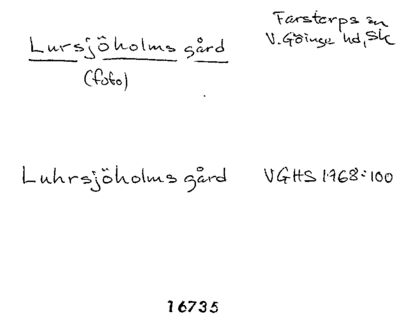 Farstorps sn
Lursjöholms gård
V. Göinge hd, Sk
(foto)
Luhrsjöholms gård VGHS 1968:100
16735